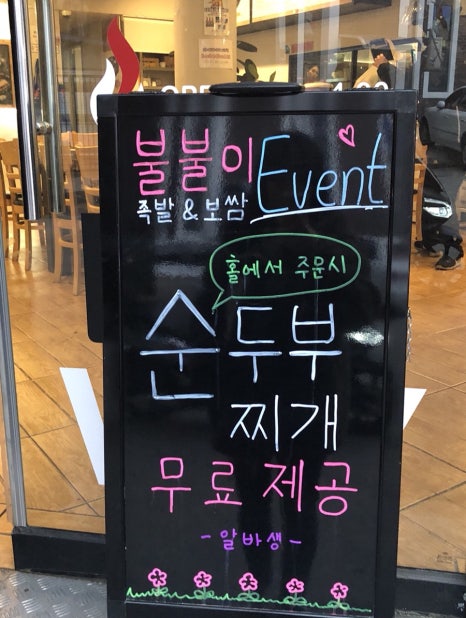 불불이 Event ♡
족발 & 보쌈
홀에서 주문시
순두부
찌개
무료 제공
- 알바생 -